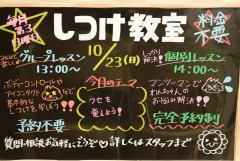 毎月
第3
月曜日
しつけ教室
料金
不要
みんなで楽しく
グループレッスン
13:00〜
10/23(月)
しっかり解決!
個別レッスン
14:00〜
ボディーコントロールや
アイコンタクトなど
基本的な
今日のテーマ
フセを
覚えよう!
マンツーマンで
わんちゃんの
お悩み解決!!
予約不要
完全予約制
質問・相談お気軽にどうぞ♡詳しくはスタッフまで